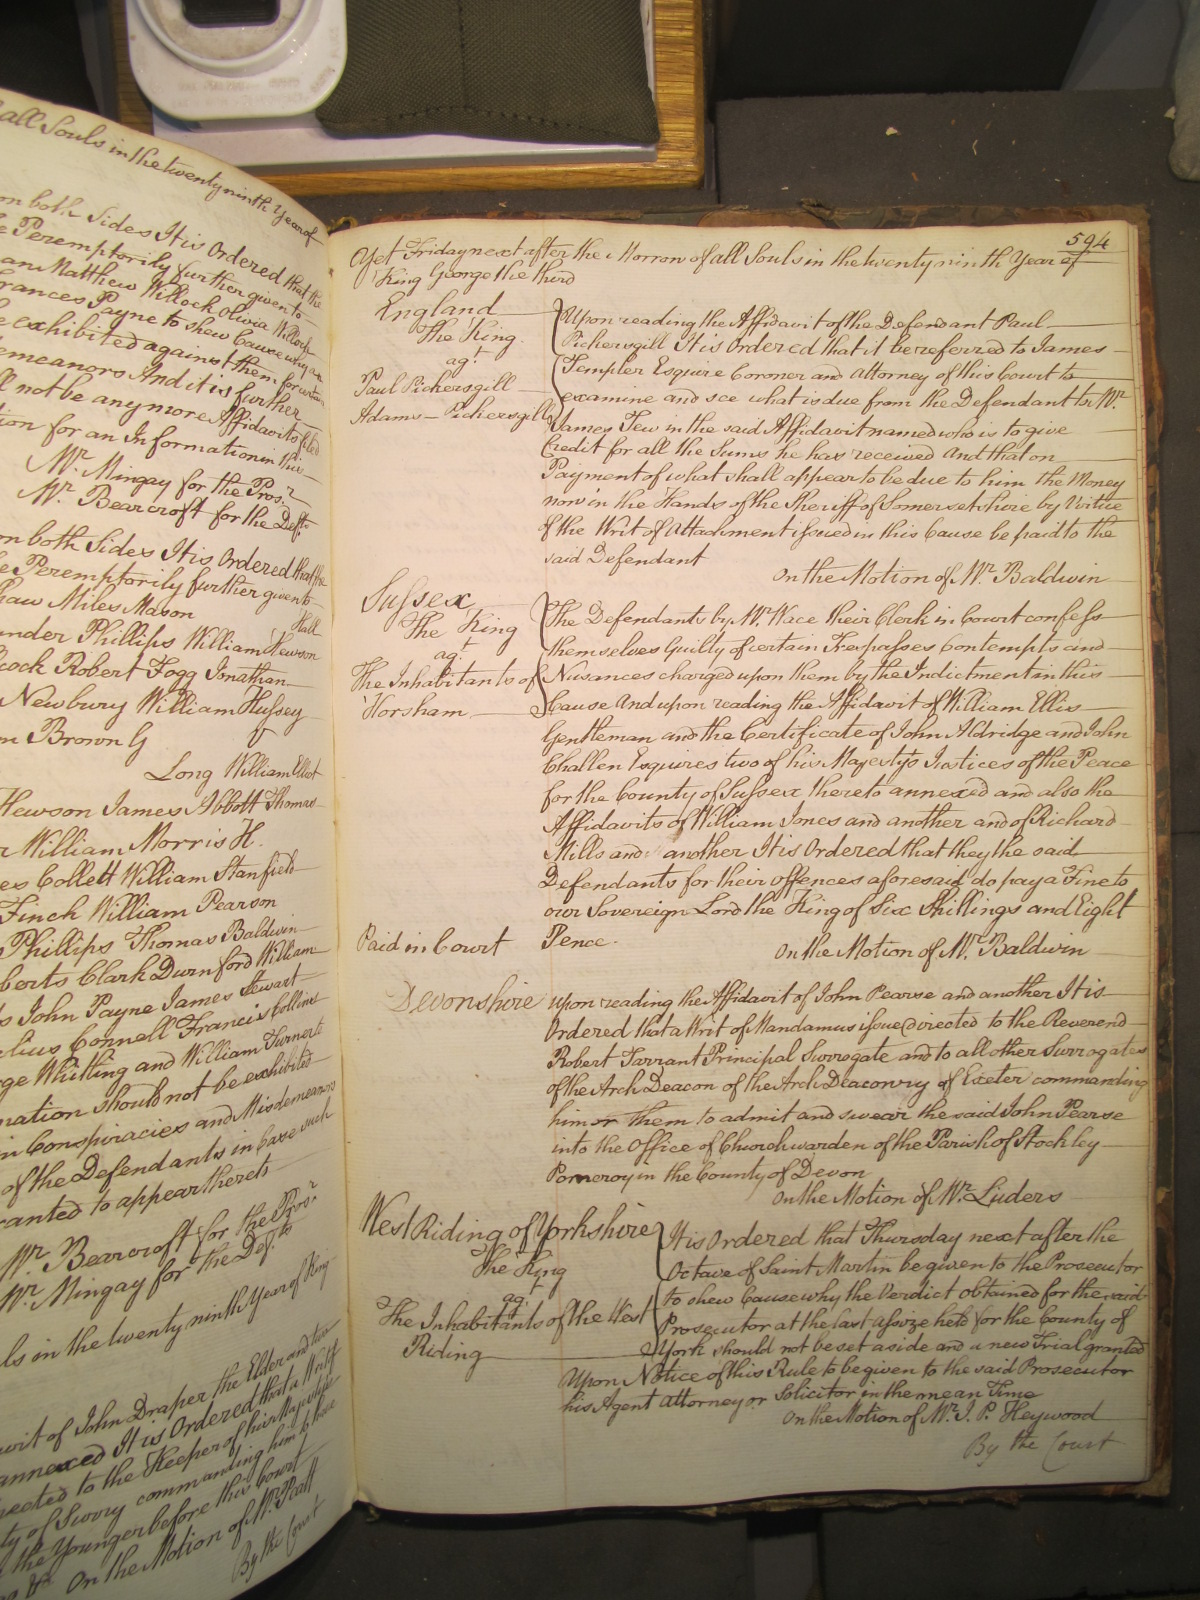 all Souls in the twenty ninth Year of
on both Sides It is Ordered that the
Peremptorily further given to
Matthew Willock Olivia Willock
Frances Payne to shew Cause why an
exhibited against them for certain
emeanors And it is further
not be any more Affidavits filed
ion for an Information in this
Mr. Mingay for the Prosr.
Mr. Bearcroft for the Deft.
on both Sides It is Ordered that the
Peremptorily further given to
haw Miles Mason
Hall
ander Phillips William Hewson
cock Robert Fogg Jonathan
Newbury William Hussey
m Brown G
Long William Elliot
Hewson James Abbott Thomas
r William Morris H.
es Collett William Stanfield
Finch William Pearson
Phillips Thomas Baldwin
berts Clark Durnford William
s John Payne James Stewart
elius Connell Francis Collins
ge Whitting and William Turner
mation should not be exhibited
in Conspiracies and Misdemeanors
of the Defendants in Case such
ranted to appear thereto
Mr. Bearcroft for the Prosr.
Mr. Mingay for the Defts
ls in the twenty ninth Year of King
avit of John Draper the Elder and two
annexed It is Ordered that a Writ of
rected to the Keeper of his Majestys
ty of Surry commanding him to have
the Younger before this Court
On the Motion of Mr.
By the Court
594
Yet Friday next after the Morrow of all Souls in the twenty ninth Year of
King George the third
England
The King
agt.
Paul Pickersgill
Adams — Pickersgill
Upon reading the Affidavit of the Defendant Paul
Pickersgill It is Ordered that it be referred to James
Templer Esquire Coroner and Attorney of this Court to
examine and see what is due from the Defendant to Mr.
James Tew in the said Affidavit named who is to give
Credit for all the Sums he has received And that on
Payment of what shall appear to be due to him the Money
now in the Hands of the Sheriff of Somersetshire by Virtue
of the Writ of Attachment issued in this Cause be paid to the
said Defendant
On the Motion of Mr. Baldwin
Sussex
The King
agt.
The Inhabitants of
Horsham
The Defendants by Mr. Wace their Clerk in Court confess
themselves Guilty of certain Trespasses Contempts and
Nusances charged upon them by the Indictment in this
Cause And upon reading the Affidavit of William Ellis
Gentleman and the Certificate of John Aldridge and John
Challen Esquires two of his Majesty's Justices of the Peace
for the County of Sussex thereto annexed and also the
Affidavits of William Jones and another and of Richard
Mills and another It is Ordered that they the said
Defendants for their offences aforesaid do pay a Fine to
our Sovereign Lord the King of Six Shillings and Eight
Pence.
Paid in Court
On the Motion of Mr. Baldwin
Devonshire
Upon reading the Affidavit of John Pearse and another It is
Ordered that a Writ of Mandamus issue directed to the Reverend
Robert Tarrant Principal Surrogate and to all other Surrogates
of the Arch Deacon of the Arch Deaconry of Exeter commanding
him or them to admit and swear the said John Pearse
into the Office of Churchwarden of the Parish of Stockley
Pomeroy in the County of Devon
On the Motion of Mr. Luders
West Riding of Yorkshire
The King
agt.
The Inhabitants of the West
Riding
It is Ordered that Thursday next after the
Octave of Saint Martin be given to the Prosecutor
to shew Cause why the Verdict obtained for the said
Prosecutor at the last Assize held for the County of
York should not be set aside and a new Trial granted
Upon Notice of this Rule to be given to the said Prosecutor
his Agent Attorney or Solicitor in the mean Time
On the Motion of Mr. J. P. Heywood
By the Court